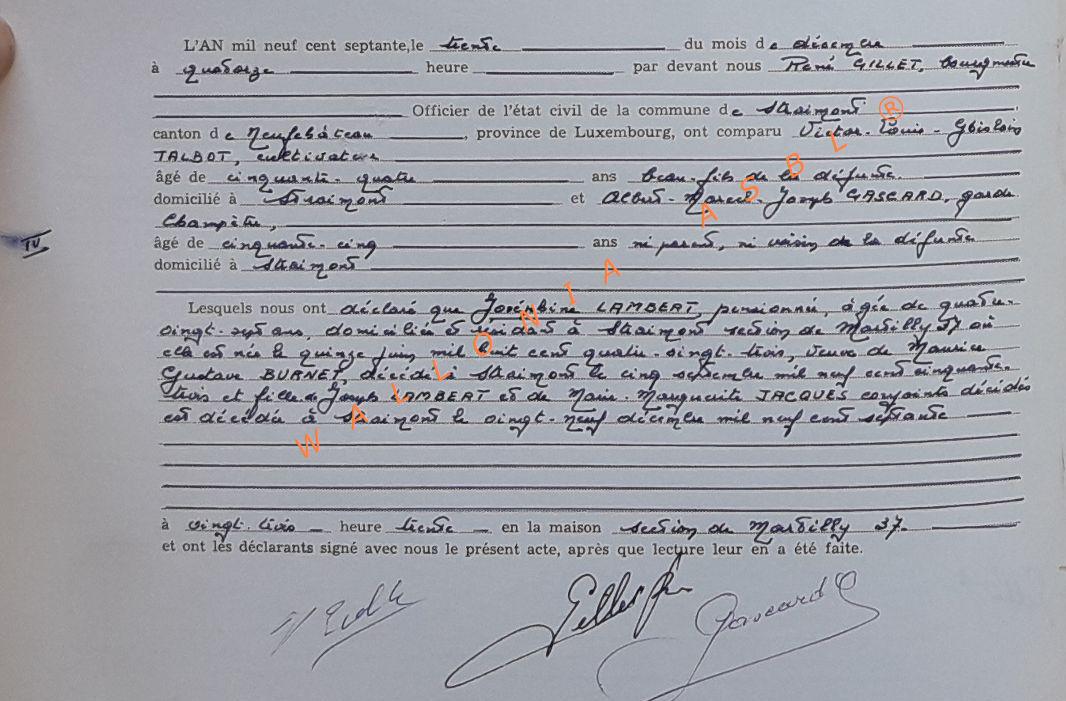 L'AN mil neuf cent septante, le trente du mois de décembre
à quatorze heure par devant nous René GILLET, bourgmestre
Officier de l'état civil de la commune de Straimont
canton de Neufchâteau, province de Luxembourg, ont comparu Victor-Louis-Ghislain
TALBOT, cultivateur
âgé de cinquante-quatre ans beau-fils de la défunte.
domicilié à Straimont et Albert-Marcel-Joseph GASCARD, garde
champêtre,
IV
âgé de cinquante-cinq ans ni parent, ni voisin de la défunte
domicilié à Straimont
Lesquels nous ont déclaré que Joséphine LAMBERT, pensionnée, âgée de quatre-
vingt-sept ans, domiciliée et résidant à Straimont section de Martilly 37 où
elle est née le quinze juin mil huit cent quatre-vingt-trois, veuve de Maurice
Gustave BURNET, décédé à Straimont le cinq septembre mil neuf cent cinquante-
trois et fille de Joseph LAMBERT et de Marie-Marguerite JACQUES conjoints décédés
est décédée à Straimont le vingt-neuf décembre mil neuf cent septante
à vingt-trois heure trente en la maison section de Martilly 37
et ont les déclarants signé avec nous le présent acte, après que lecture leur en a été faite.
Gascard
WALLONIA ASBL ®